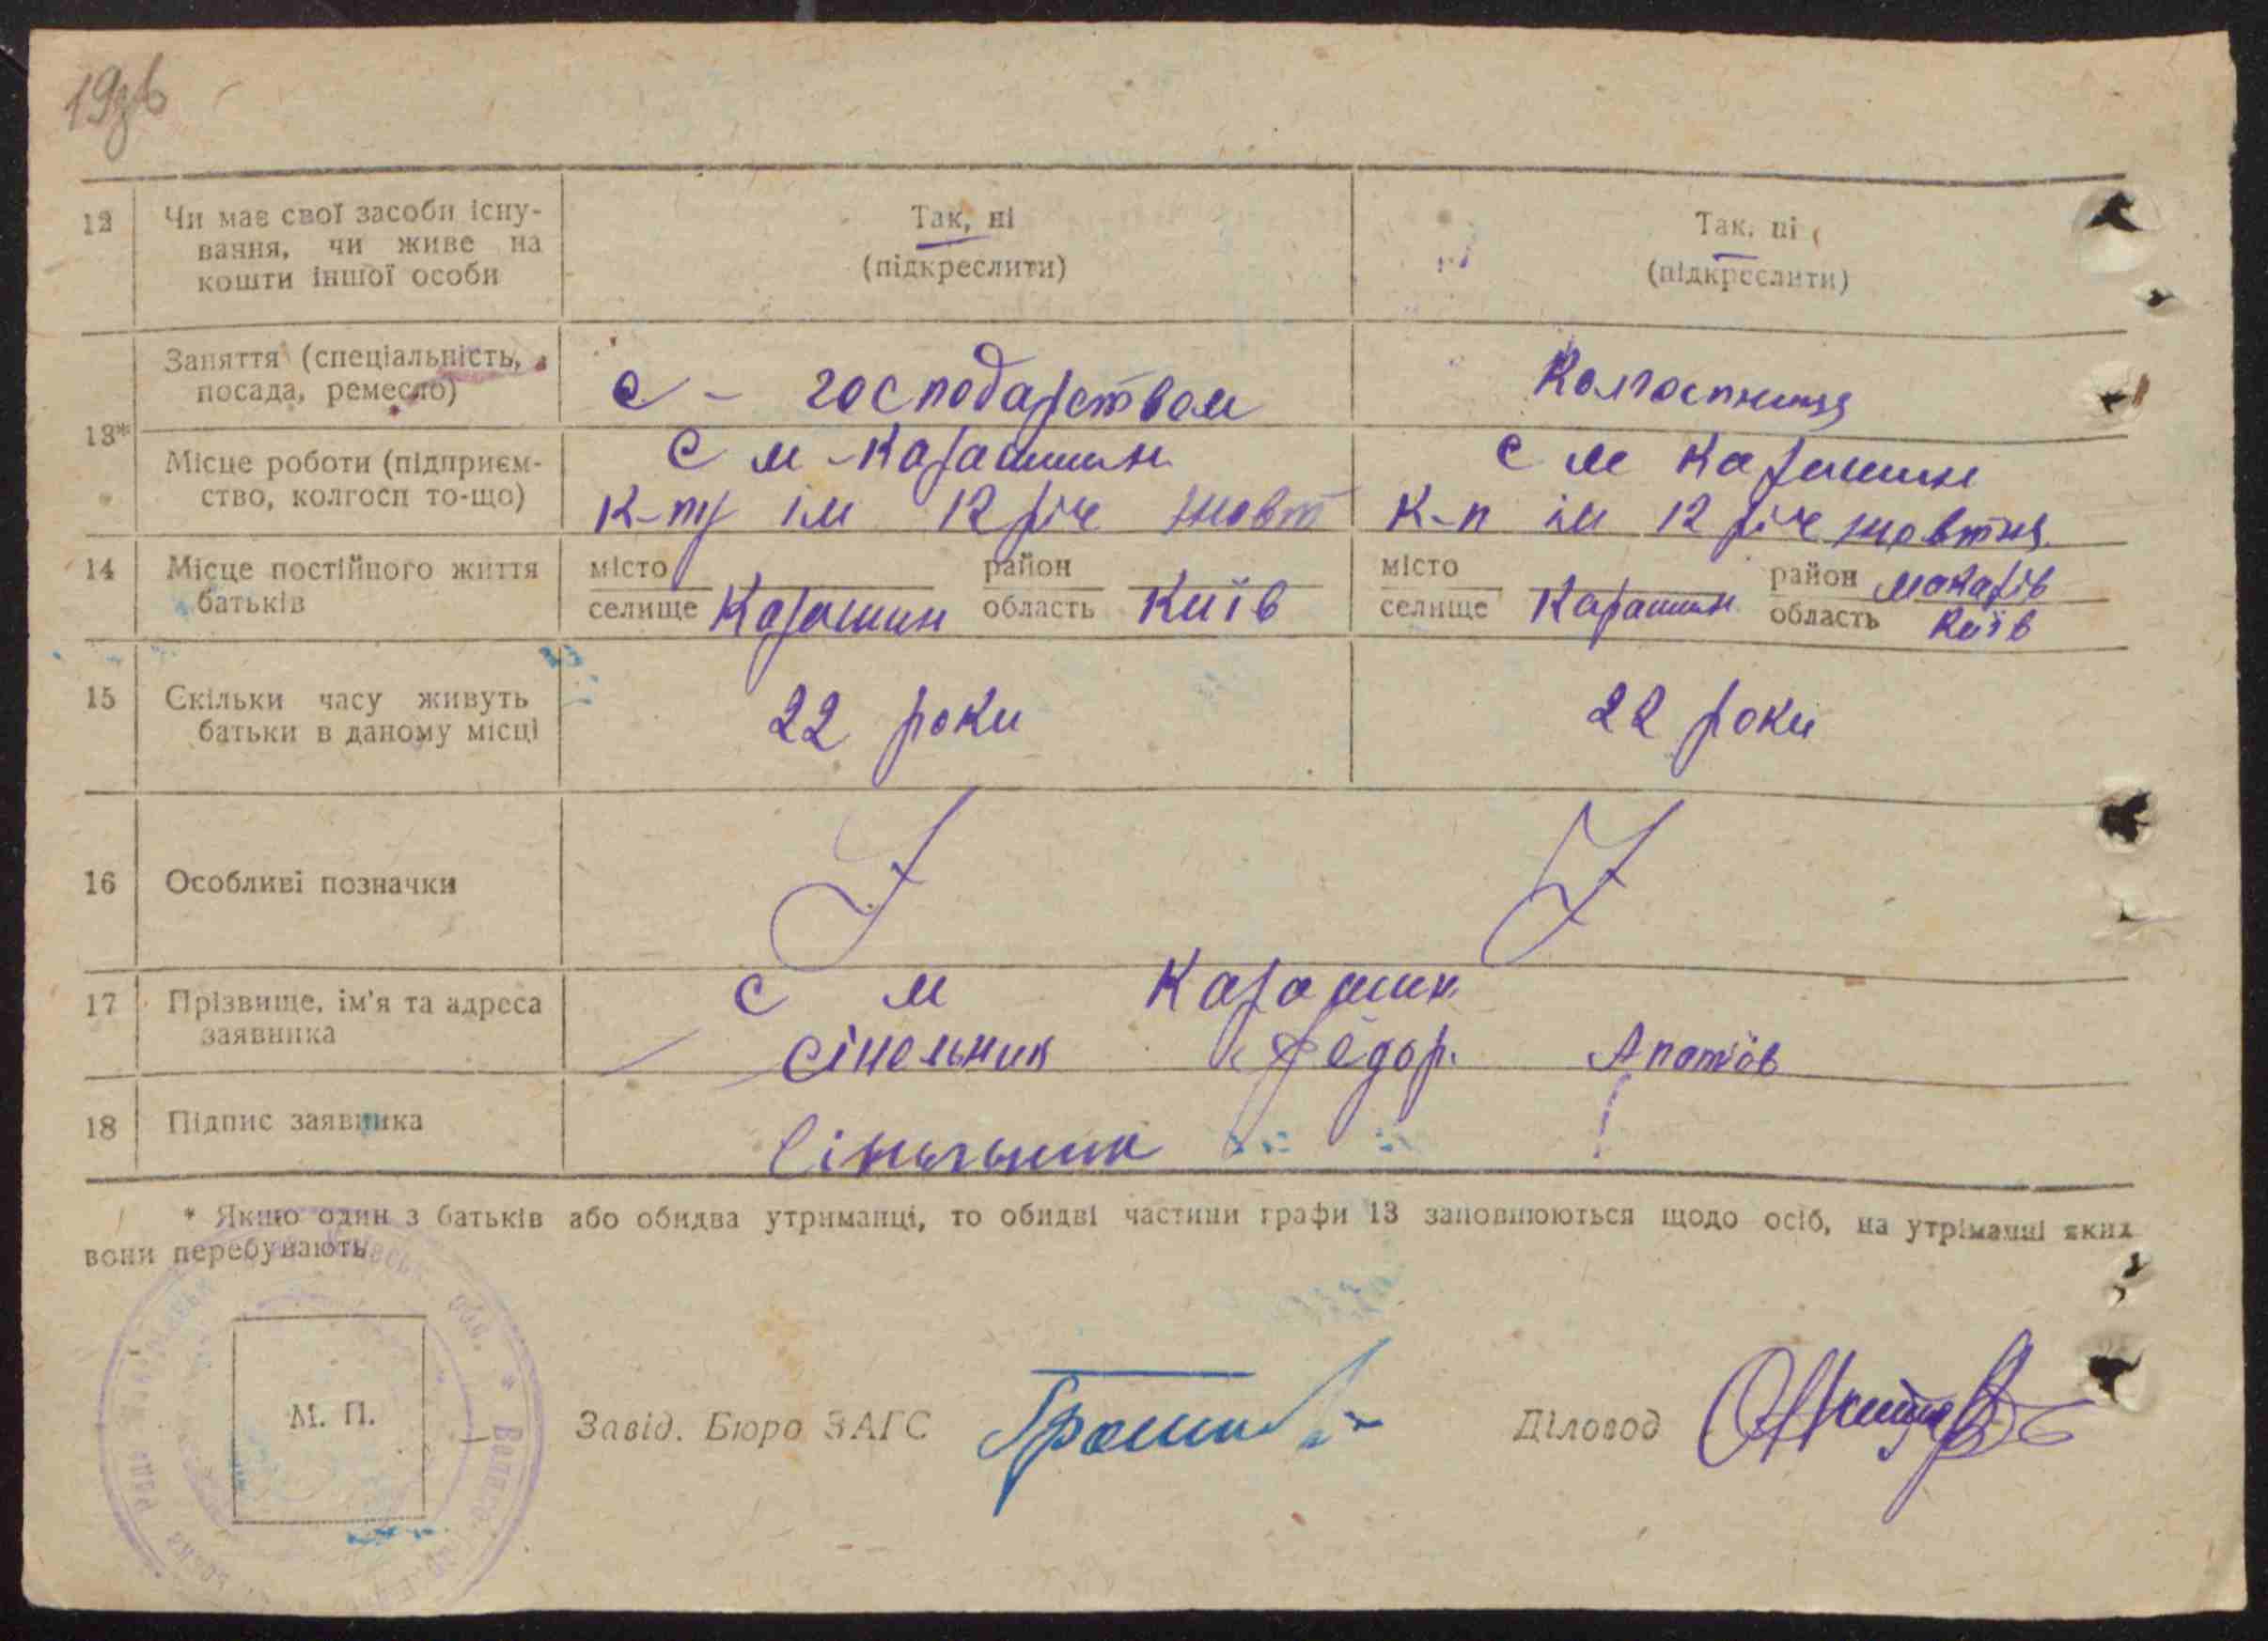 19зв
12 Чи має свої засоби існу-
вання, чи живе на
кошти іншої особи
Так, ні
(підкреслити)
Так, ні
(підкреслити)
13*
Заняття (спеціальність,
посада, ремесло)
с - господарством
Колгоспниця
Місце роботи (підприєм-
ство, колгосп то-що)
с м - Карашин
к-пу ім 12 річ жовт
с м Карашин
к-п ім 12 річ жовтня
14 Місце постійного життя
батьків
місто
селище Карашин
район
область Київ
місто
селище Карашин
район Макарів
область Київ
15 Скільки часу живуть
батьки в даному місці
22 роки
22 роки
16 Особливі позначки
17 Прізвище, ім'я та адреса
заявника
с м Карашин
Сінельник Фёдор
18 Підпис заявника
Сінельник
* Якщо один з батьків або обидва утриманці, то обидві частини графи 13 заповнюються щодо осіб, на утріманні яких
вони перебувають
М. П.
Завід. Бюро ЗАГС
Діловод